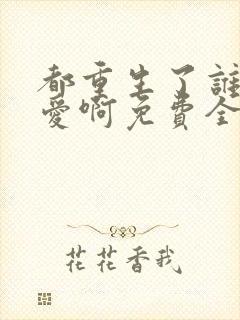 都重生了誰
愛啊免費全
花花香我